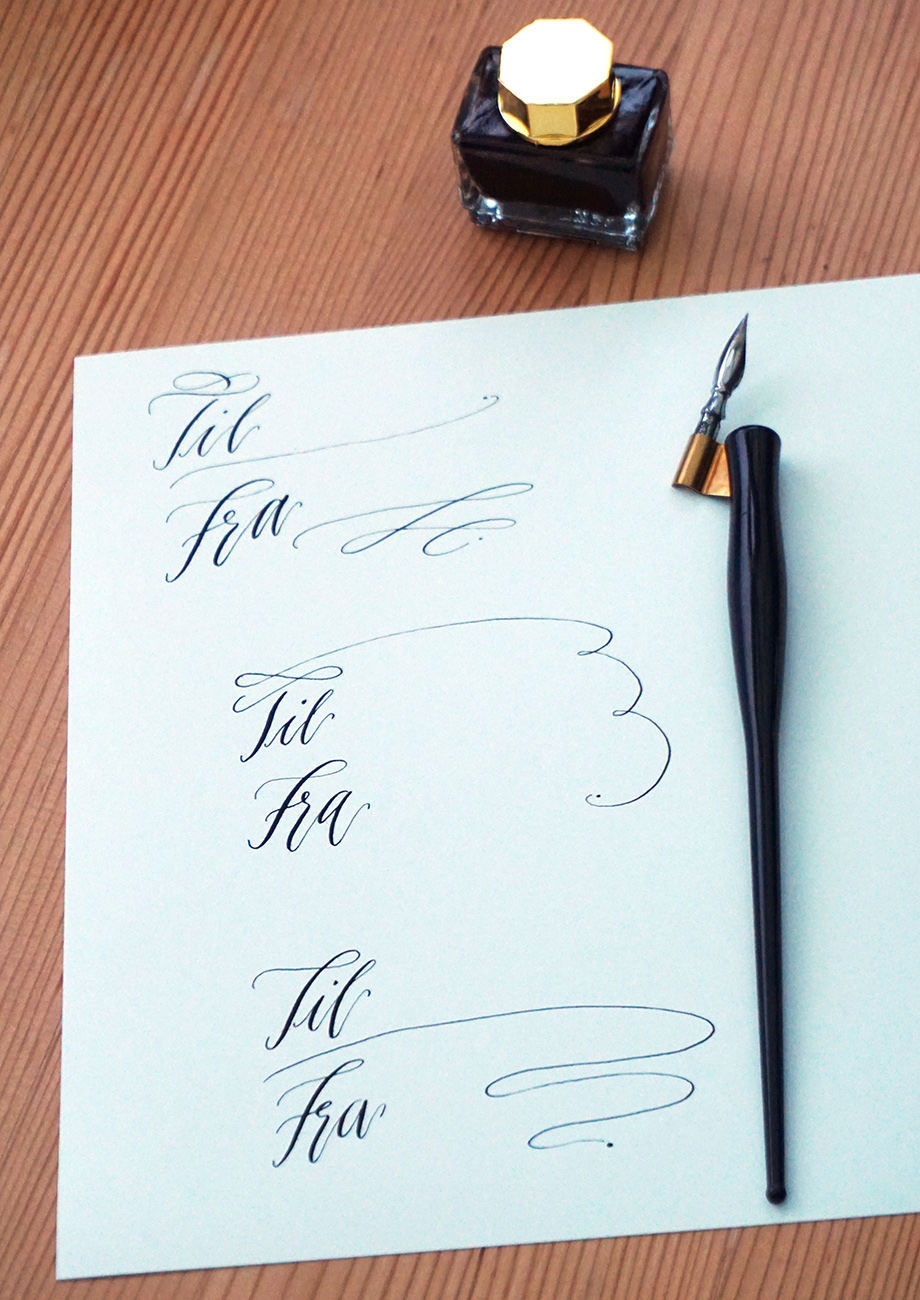 Til
Fra
Til
Fra
Til
Fra